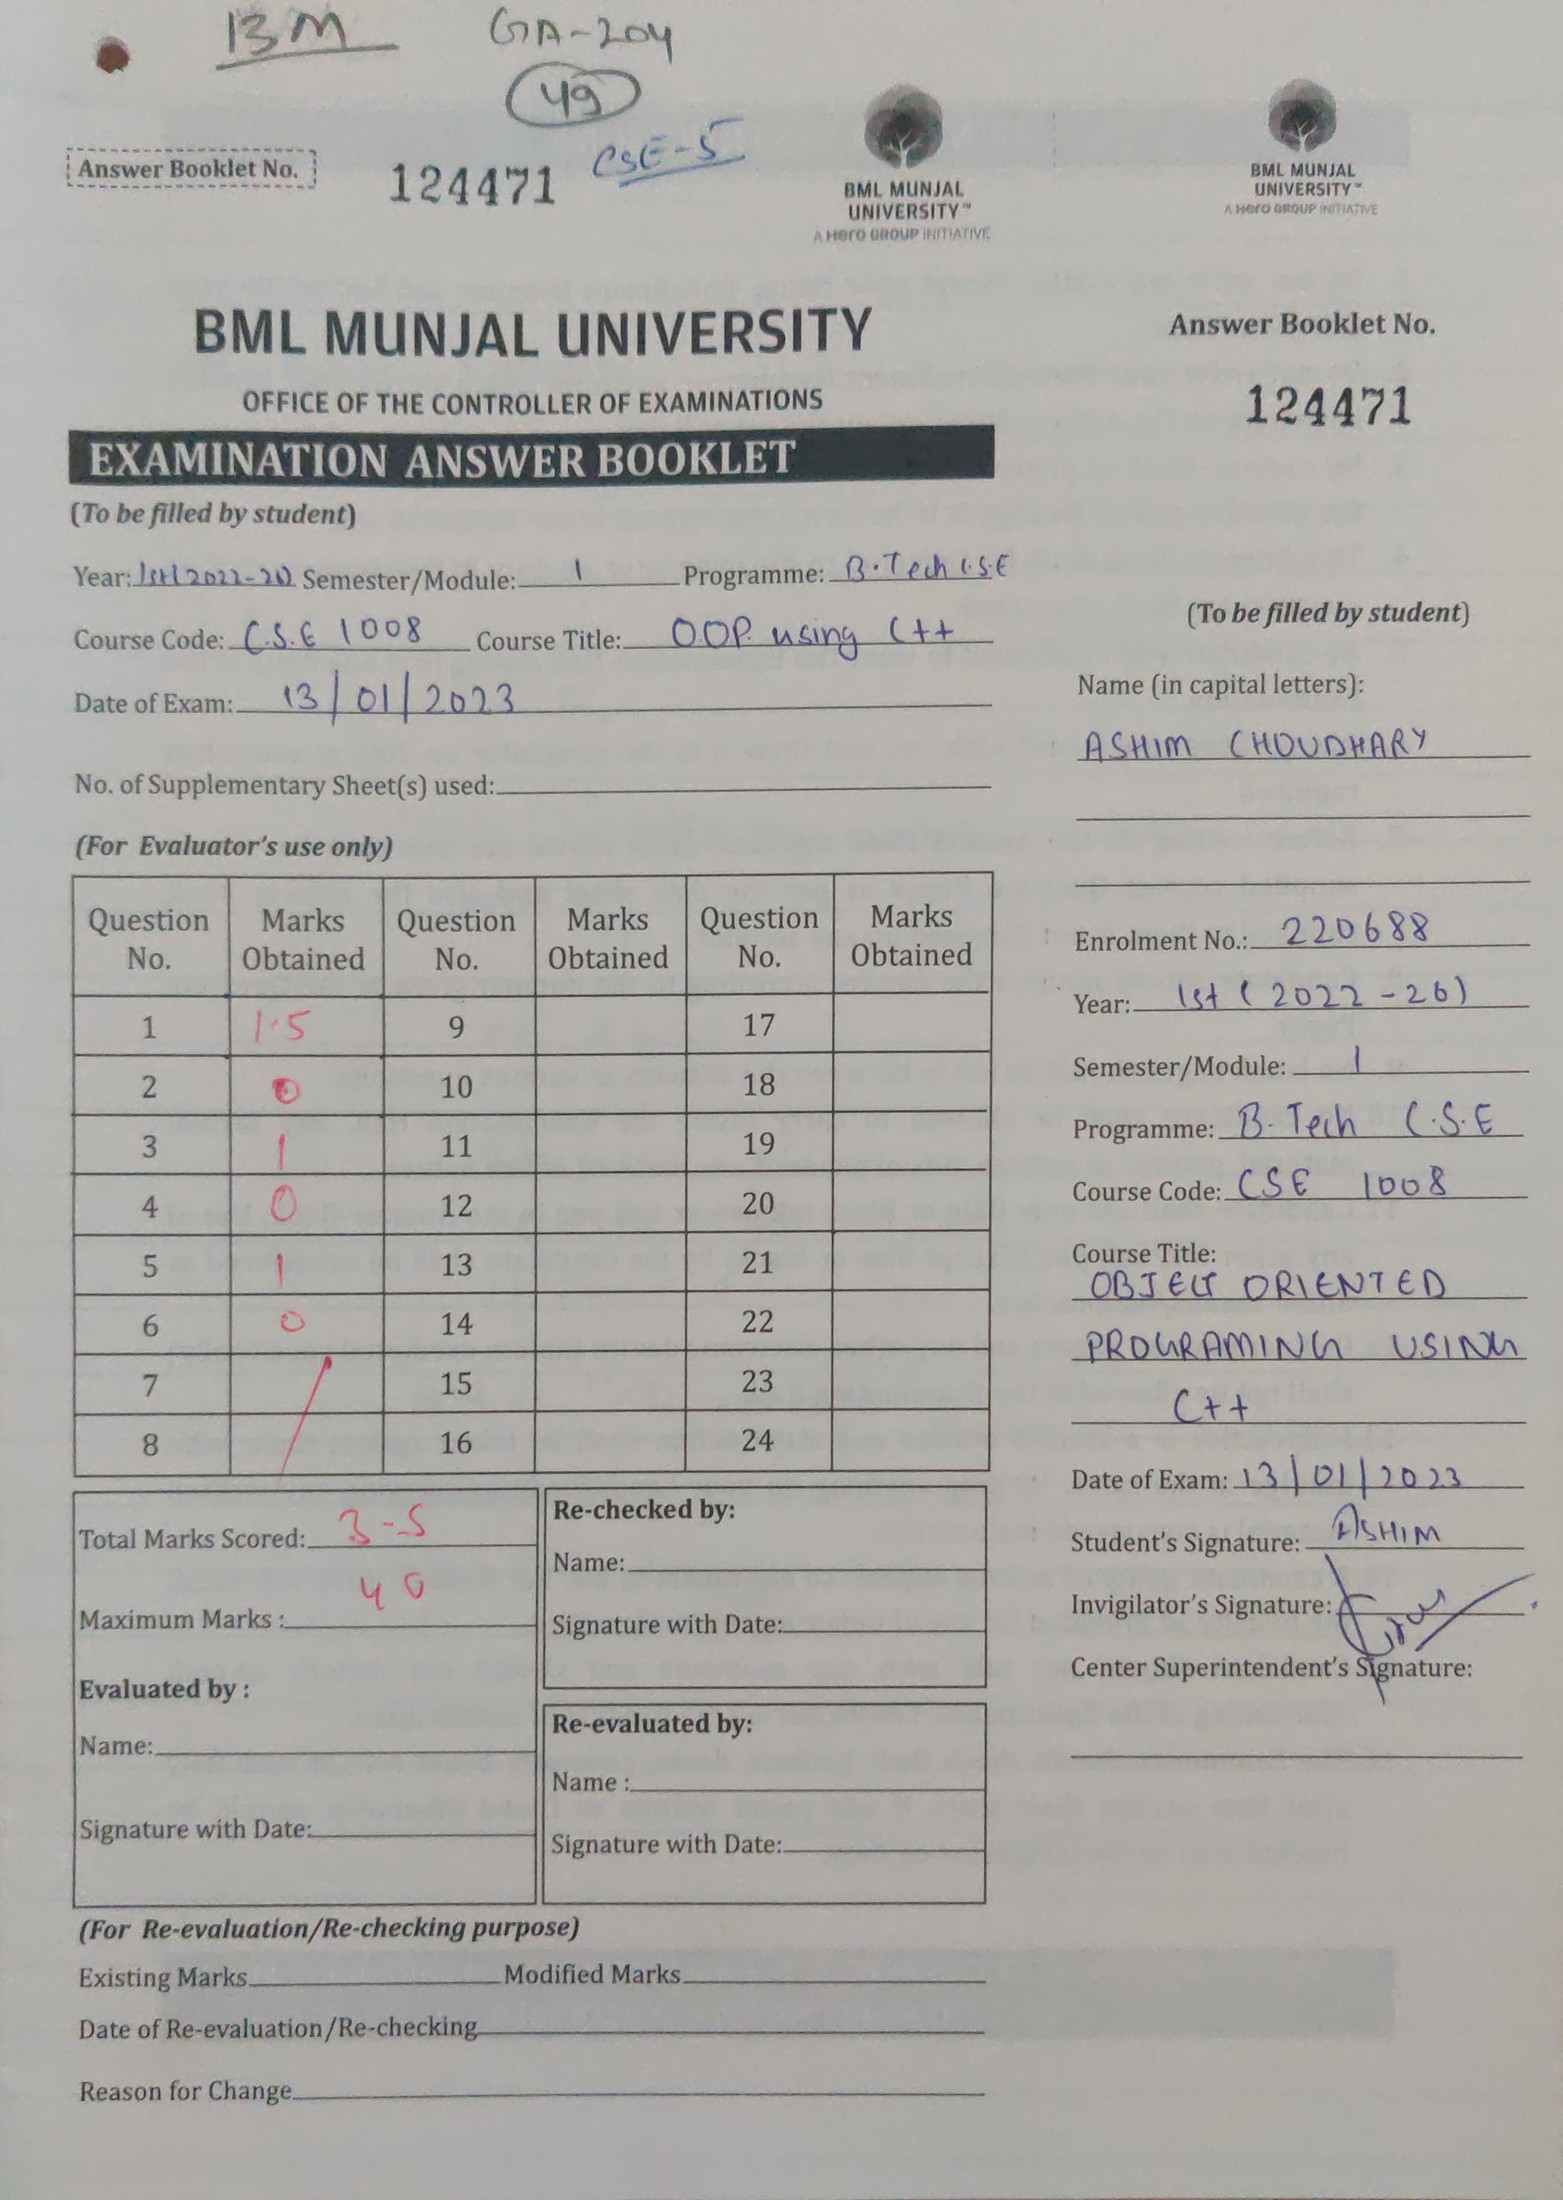 13M GA-204
49
CSE-5
Answer Booklet No. 124471
BML MUNJAL
UNIVERSITY™
A Hero GROUP INITIATIVE
BML MUNJAL
UNIVERSITY™
A Hero GROUP INITIATIVE
BML MUNJAL UNIVERSITY
OFFICE OF THE CONTROLLER OF EXAMINATIONS
EXAMINATION ANSWER BOOKLET
(To be filled by student)
Year: 1st(2022-26) Semester/Module: 1 Programme: B.Tech C.S.E
Course Code: C.S.E 1008 Course Title: O.O.P. using C++
Date of Exam: 13/01/2023
No. of Supplementary Sheet(s) used:
(For Evaluator's use only)
Question No. Marks Obtained Question No. Marks Obtained Question No. Marks Obtained
1 1.5 9 17
2 0 10 18
3 1 11 19
4 0 12 20
5 1 13 21
6 0 14 22
7 15 23
8 16 24
Total Marks Scored: 3-5
Maximum Marks : 40
Evaluated by :
Name:
Signature with Date:
Re-checked by:
Name:
Signature with Date:
Re-evaluated by:
Name :
Signature with Date:
(For Re-evaluation/Re-checking purpose)
Existing Marks Modified Marks
Date of Re-evaluation/Re-checking
Reason for Change
Answer Booklet No.
124471
(To be filled by student)
Name (in capital letters):
ASHIM CHOUDHARY
Enrolment No.: 220688
Year: 1st (2022-26)
Semester/Module: 1
Programme: B.Tech C.S.E
Course Code: CSE 1008
Course Title:
OBJECT ORIENTED
PROGRAMING USING
C++
Date of Exam: 13/01/2023
Student's Signature: ASHIM
Invigilator's Signature:
Center Superintendent's Signature: